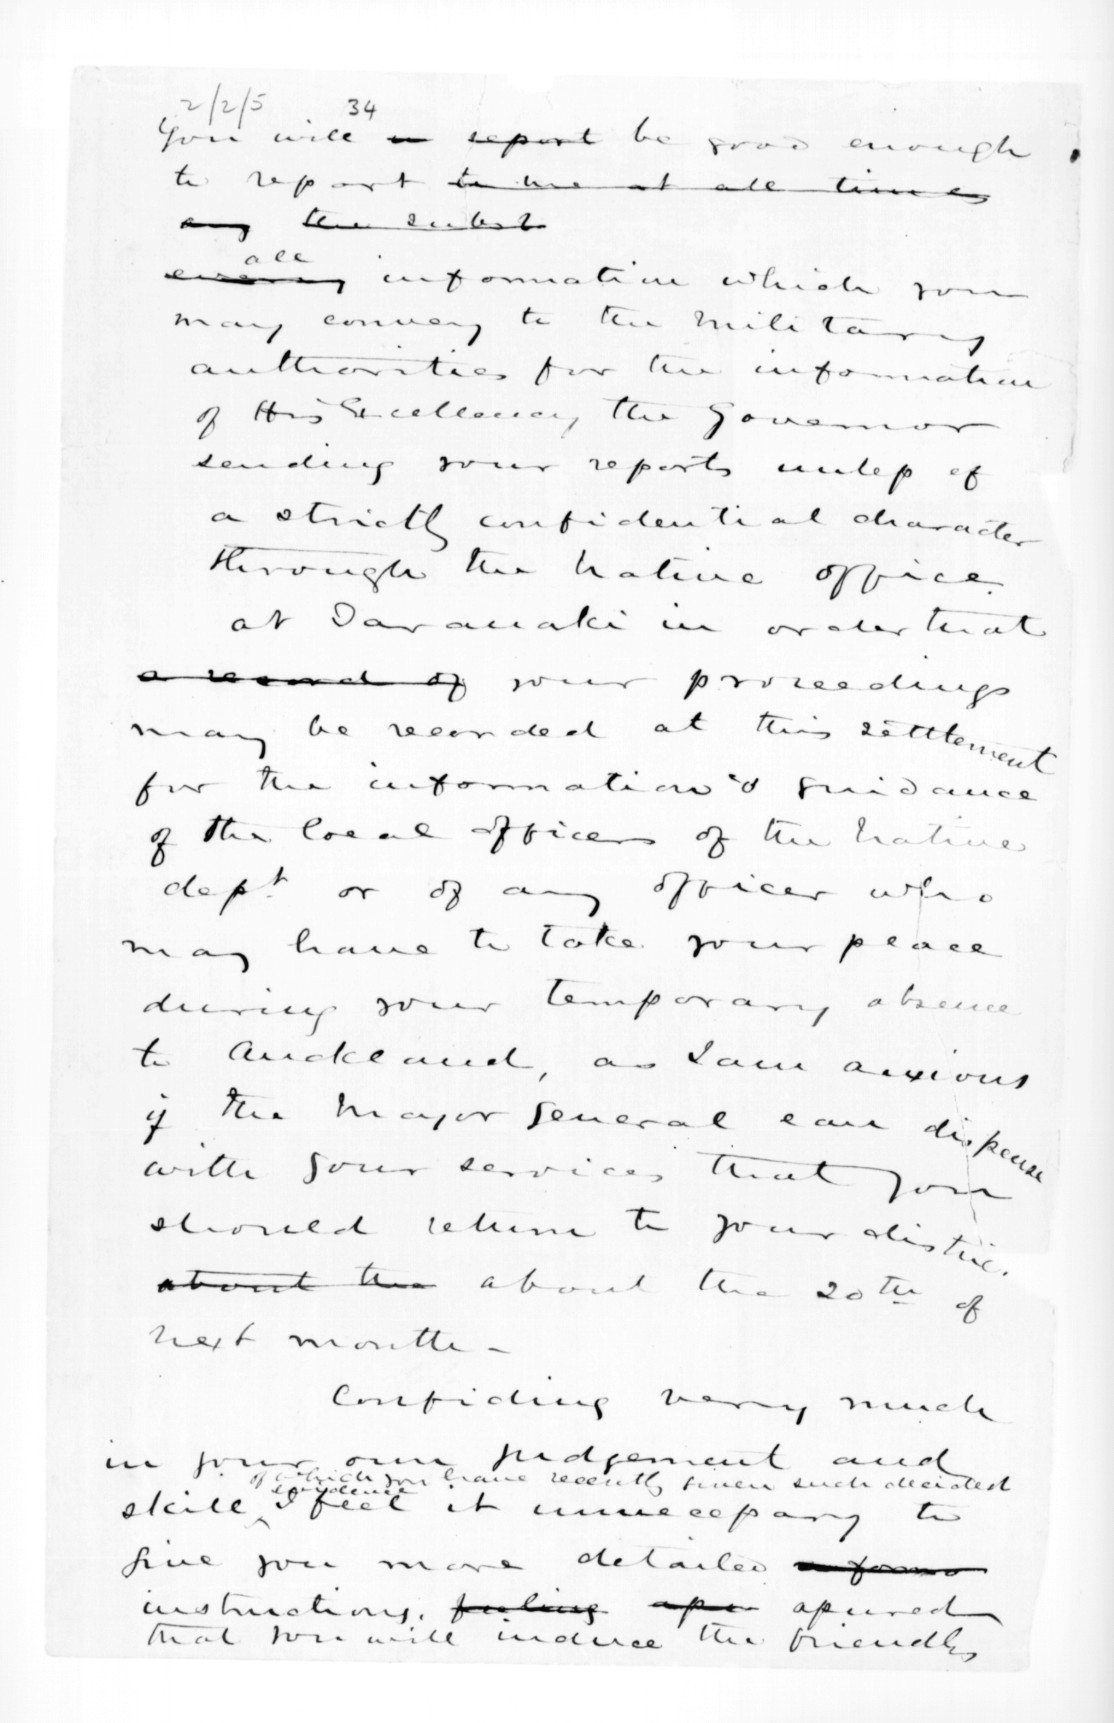 2/2/5 34
You will report be good enough
to report to me at all times
any the subst
all
every information which you
may convey to the Military
authorities for the information
of His Excellency the Governor
sending your reports unless of
a strictly confidential character
through the Native office
at Taranaki in order that
a record of your proceedings
may be recorded at this settlement
for the information & guidance
of the local officers of the Native
dept. or of any officer who
may have to take your peace
during your temporary absence
to Auckland, as I am anxious
if the Major General can dispense
with your services that you
should return to your distric.
about the about the 20th of
next month -
Confiding very much
in your own judgement and
of which you have recently given such decided
evidence
skill I feel it unnecessary to
give you more detailed
instructions. feeling assu assured
that you will induce the friendly